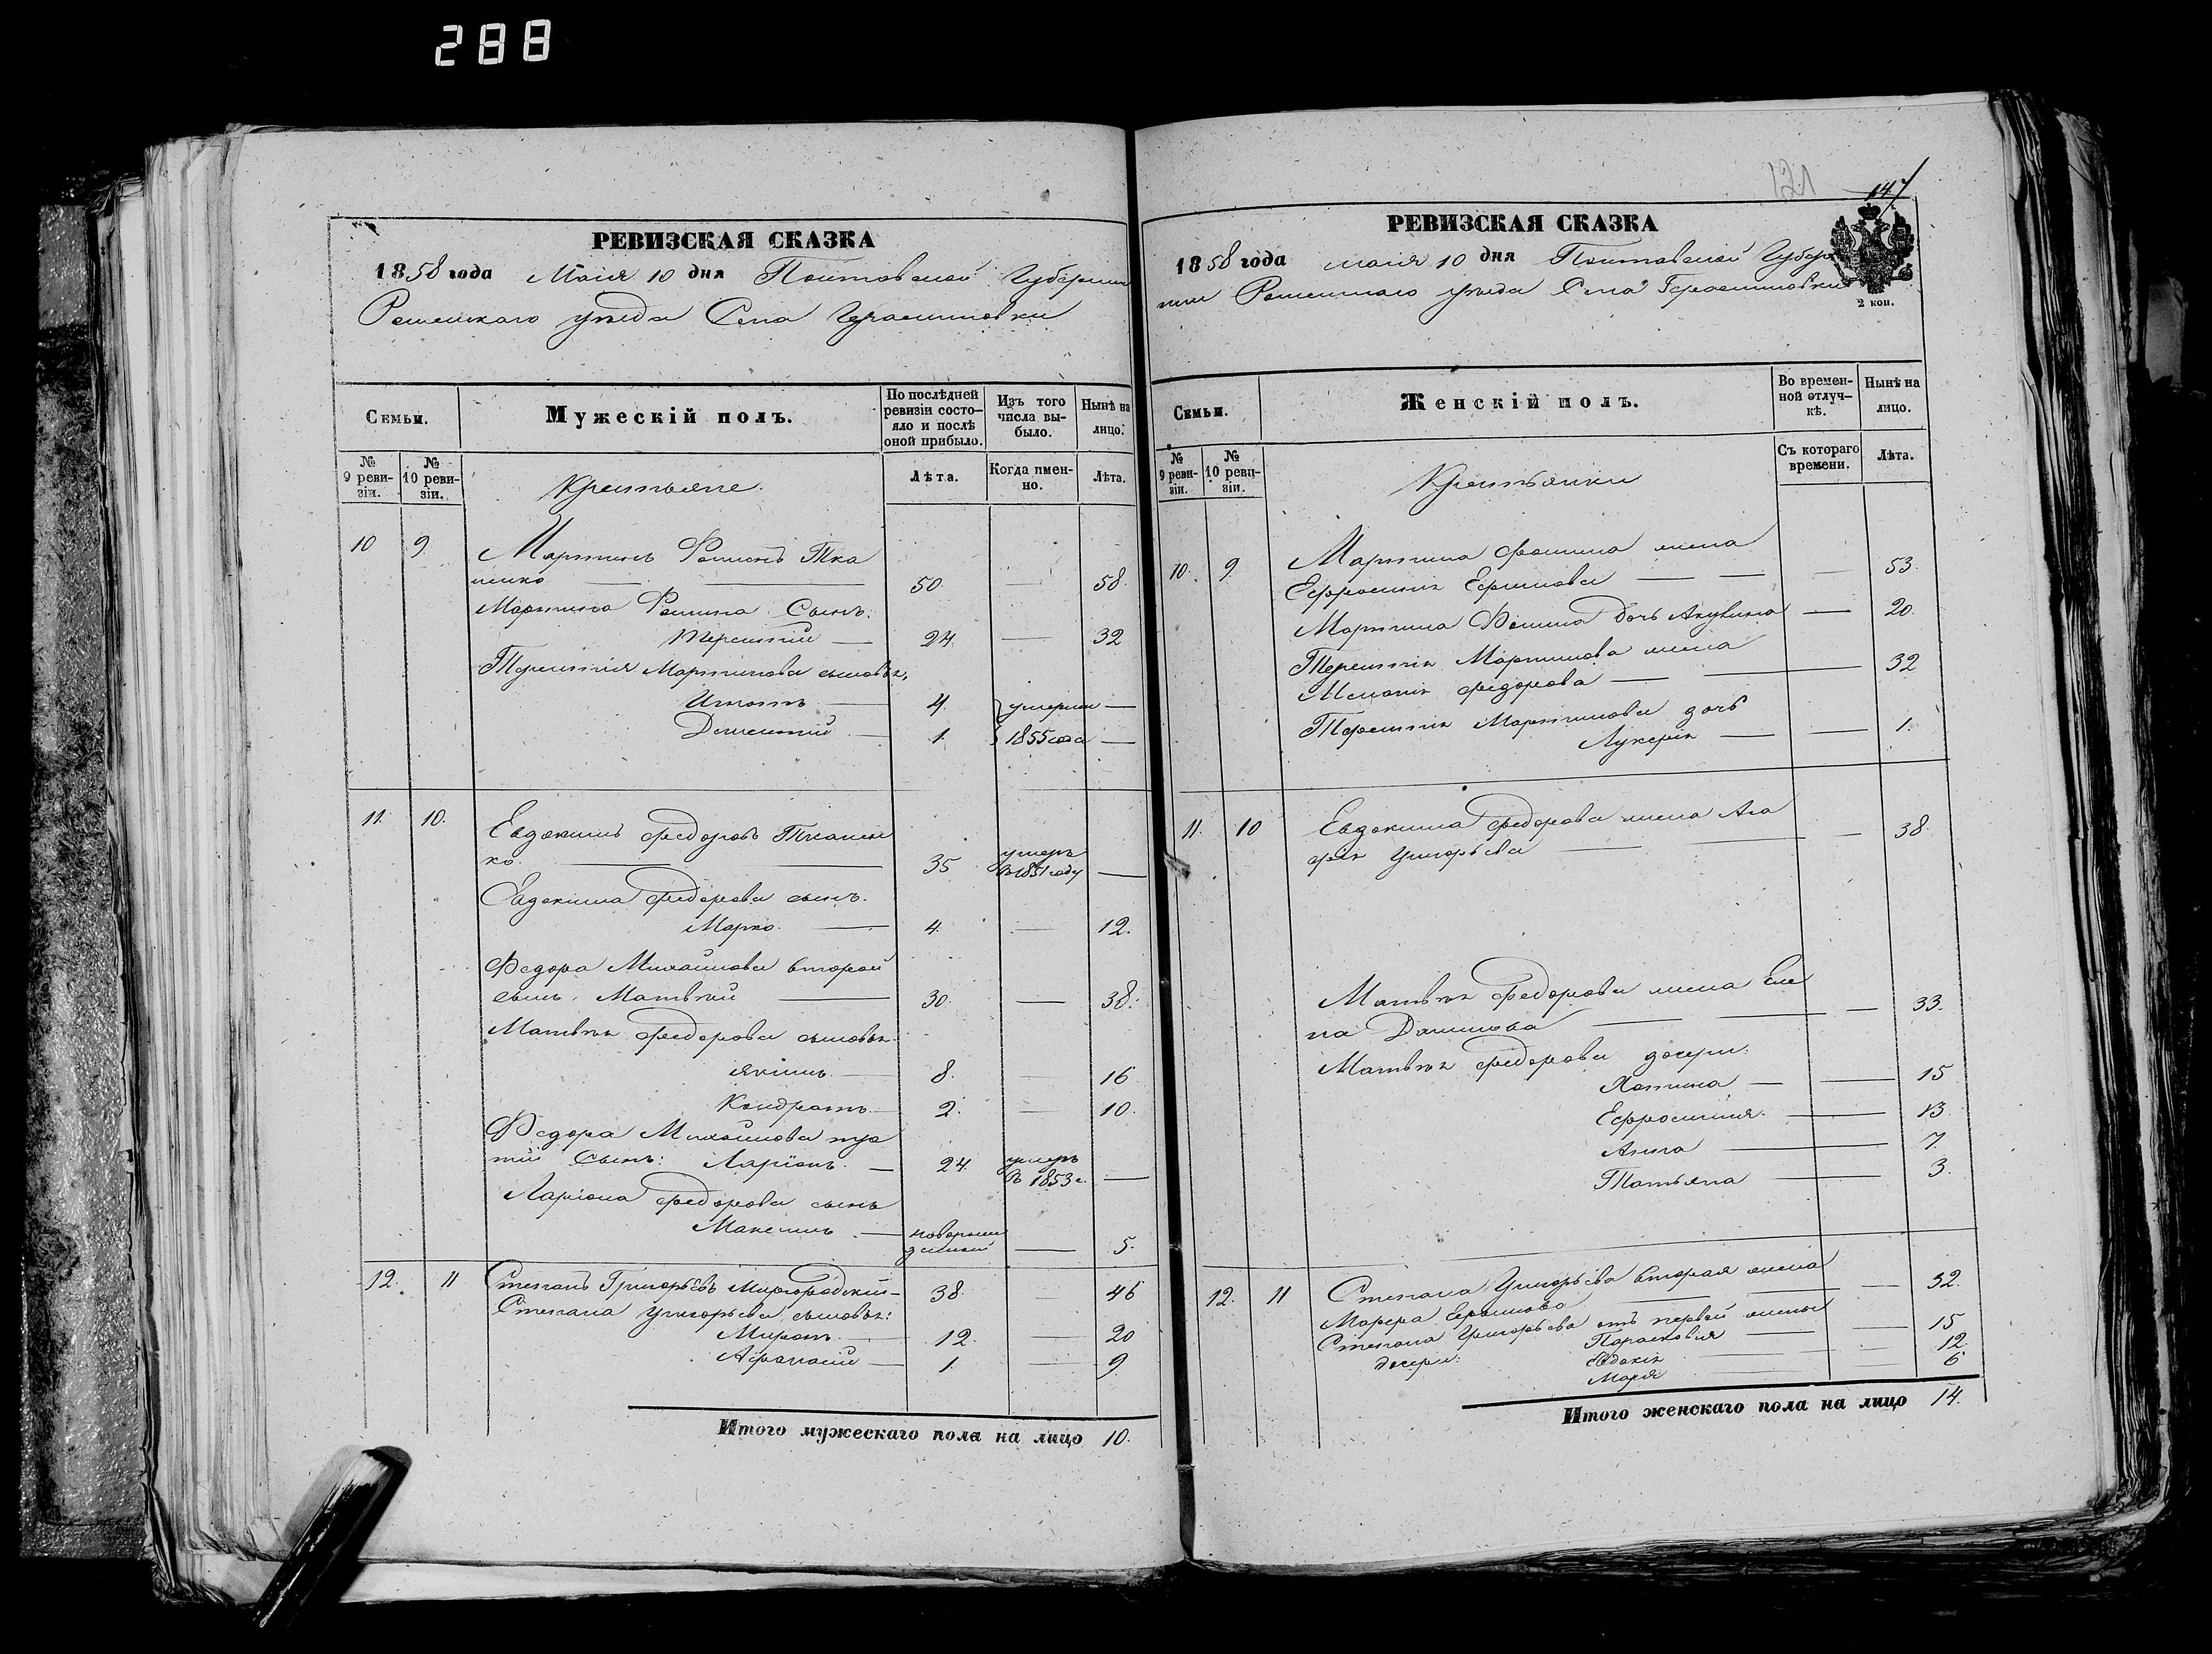 288
РЕВИЗСКАЯ СКАЗКА
1858 года Маія 10 дня Полтавской Губерніи
Роменскаго уѣзда Села Герасимовки
Семьи.
Мужескій полъ.
По послѣдней ревизіи состояло и послѣ оной прибыло.
Изъ того числа выбыло.
Нынѣ на лицо.
№ 9 ревизіи.
№ 10 ревизіи.
Крестьяне.
Лѣта.
Когда именно.
Лѣта.
10 9 Мартинъ Фоминъ Тка
ченко — 50. — 58.
Мартина Фомина Сынъ:
Терентій — 24. — 32
Терентія Мартинова сыновья,
Игнатъ — 4. умерли —
Дементій — 1. 1855 года —
11. 10. Евдокимъ Федоровъ Ткачен
ко. — 35 умеръ в 1851 году —
Евдокима Федорова сынъ.
Марко. — 4. — 12.
Федора Михайлова второй
сынъ. Матвѣй — 30. — 38.
Матвѣя Федорова сыновья.
Якимъ. — 8. — 16
Кондратъ — 2. — 10.
Федора Михайлова тре
тій Сынъ: Ларіонъ. — 24. умеръ в 1853 г. —
Ларіона Федорова сынъ
Максимъ. — новорожденный — 5.
12. 11 Степанъ Григорьевъ Миргородскій — 38. — 46
Степана Григорьева сыновья:
Миронъ — 12. — 20
Афанасій — 1. — 9.
Итого мужескаго пола на лицо 10.
121
147
РЕВИЗСКАЯ СКАЗКА
1858 года маія 10 дня Полтавской Губер
ніи Роменскаго уѣзда Села Герасимовки
2 коп.
Семьи.
Женскій полъ.
Во временной отлучкѣ.
Нынѣ на лицо.
№ 9 ревизіи.
№ 10 ревизіи.
Крестьянки
Съ котораго времени.
Лѣта.
10. 9. Мартина Фомина жена
Ефросинія Ефимова — — 53.
Мартина Фомина дочь Акулина — 20.
Терентія Мартинова жена
Меланія Федорова — 32
Терентія Мартинова дочь
Лукерія — — 1.
11. 10 Евдокима Федорова жена Ага
фія Григорьева — — 38.
Матвѣя Федорова жена Еле
на Данилова — — 33.
Матвѣя Федорова дочери:
— — 15
Ефросинія. — 13.
Анна — 7.
Татьяна — 3.
12. 11 Степана Григорьева вторая жена
Марфа — — 32.
Степана Григорьева отъ первой жены
дочери: Парасковія — 15
Евдокія — 12
Марія — 6
Итого женскаго пола на лицо 14.